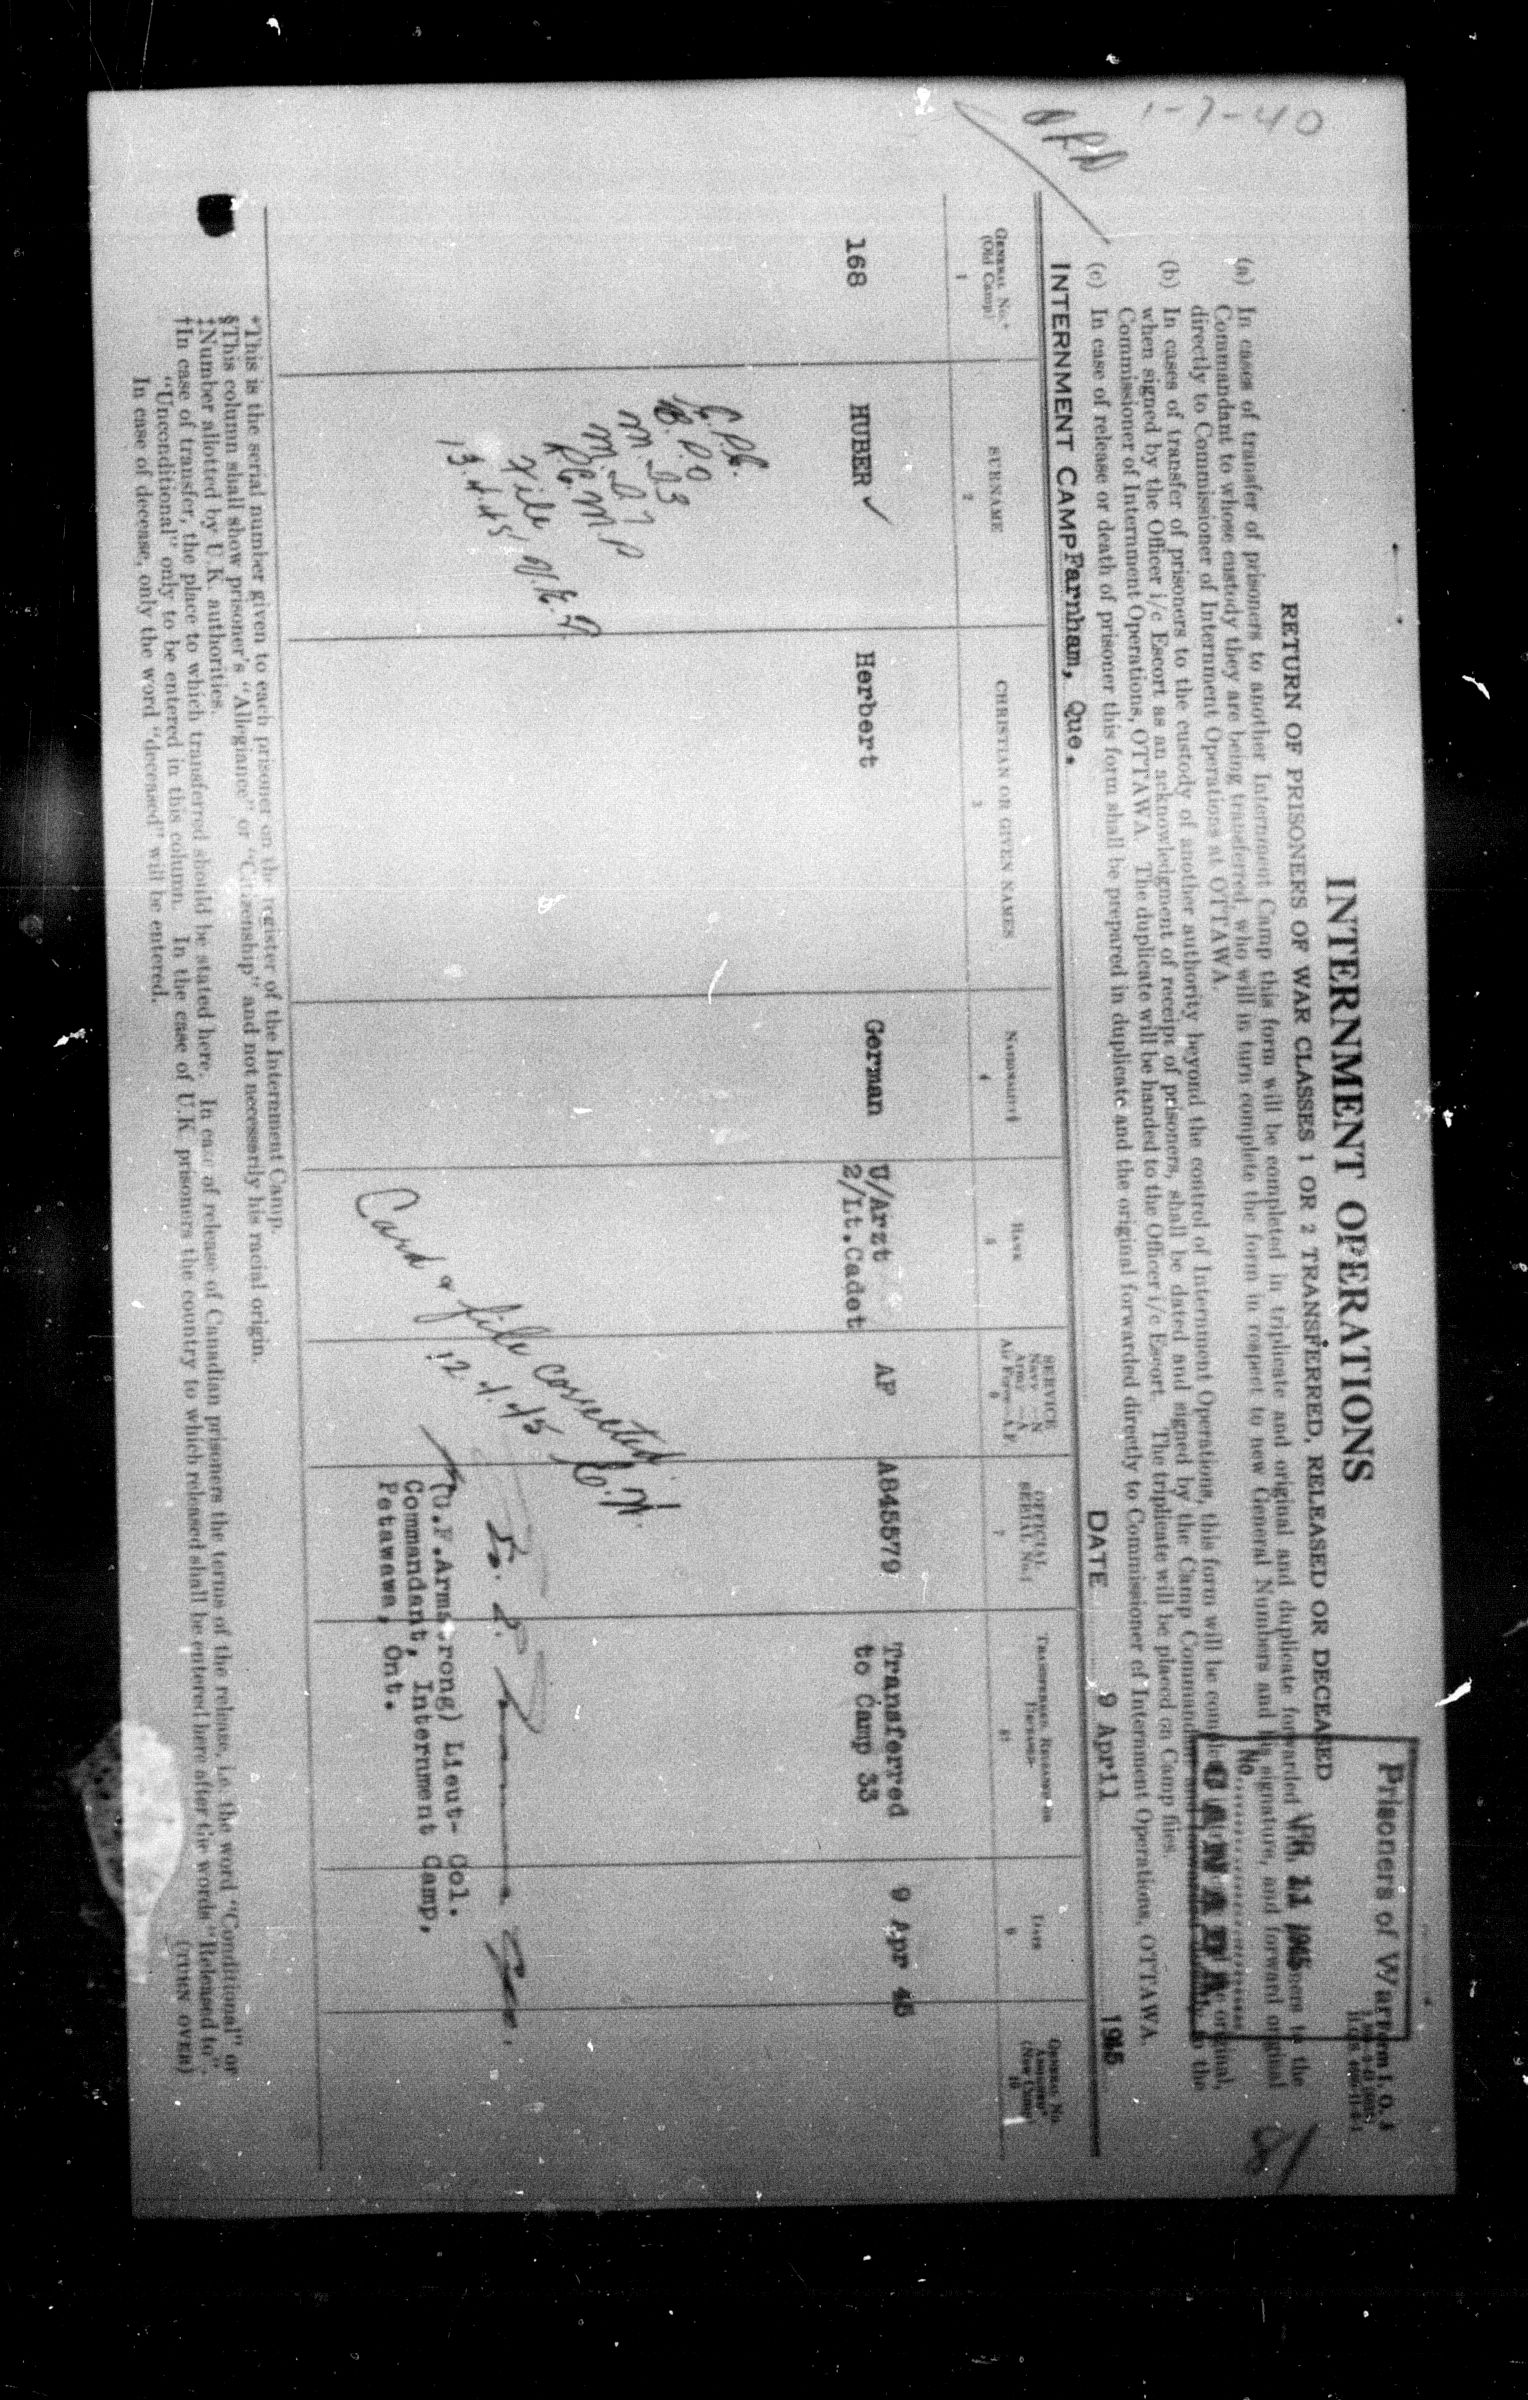 1-7-40
Prisoners of War
Form I. O. 4
APR 11 1945
No.
CANADA
INTERNMENT OPERATIONS
RETURN OF PRISONERS OF WAR CLASSES 1 OR 2 TRANSFERRED, RELEASED OR DECEASED
(a) In cases of transfer of prisoners to another Internment Camp this form will be completed in triplicate and original and duplicate forwarded to the
Commandant to whose custody they are being transferred, who will in turn complete the form in respect to new General Numbers and his signature, and forward original
directly to Commissioner of Internment Operations at OTTAWA.
(b) In cases of transfer of prisoners to the custody of another authority beyond the control of Internment Operations, this form will be original,
when signed by the Officer i/c Escort as an acknowledgment of receipt of prisoners, shall be dated and signed by the Camp Commandant to the
Commissioner of Internment Operations, OTTAWA. The duplicate will be handed to the Officer i/c Escort. The triplicate will be placed on Camp files.
(c) In case of release or death of prisoner this form shall be prepared in duplicate and the original forwarded directly to Commissioner of Internment Operations, OTTAWA.
INTERNMENT CAMP Farnham, Que. DATE 9 April 1945
GENERAL No.* (Old Camp) 1
SURNAME 2
CHRISTIAN OR GIVEN NAMES 3
NATIONALITY§ 4
RANK 5
SERVICE Navy —N Army —A Air Force—A.F. 6
OFFICIAL SERIAL No.‡ 7
TRANSFERRED, RELEASED OR DECEASED 8†
DATE 9
GENERAL No. (New Camp) 10
168 HUBER ✓ Herbert German U/Arzt AF A8455579 Transferred 9 Apr 45
2/Lt.Cadet to Camp 33
M.D3
M.D7
File
13.4.45
Card & file corrected
12.4.45
(U.F.Armstrong) Lieut- Col.
Commandant, Internment Camp,
Petawawa, Ont.
*This is the serial number given to each prisoner on the register of the Internment Camp.
§This column shall show prisoner's "Allegiance" or "Citizenship" and not necessarily his racial origin.
‡Number allotted by U.K. authorities.
†In case of transfer, the place to which transferred should be stated here. In case of release of Canadian prisoners the terms of the release, i.e. the word "Conditional" or
"Unconditional" only to be entered in this column. In the case of U.K. prisoners the country to which released shall be entered here after the words "Released to".
In case of decease, only the word "deceased" will be entered.
(TURN OVER)